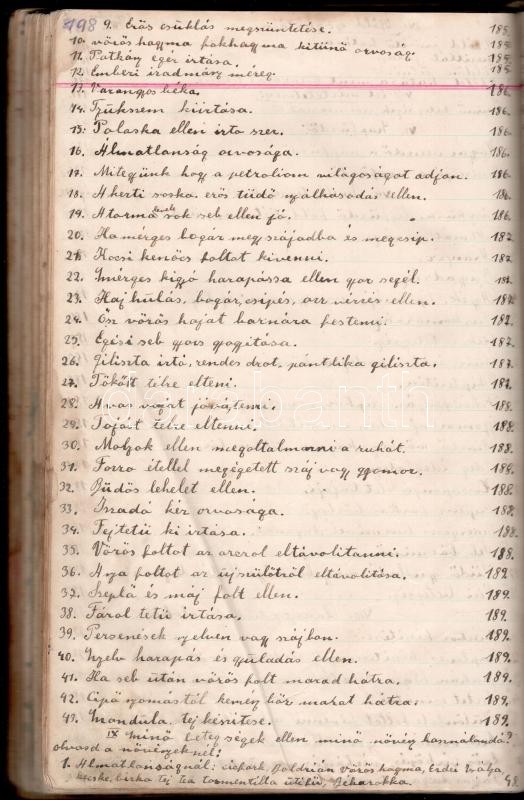 198
9. Erős csuklás megszüntetése. 185.
10. vörös hagyma fokhagyma kitünö orvoság. 185.
11. Patkány eger irtása. 185.
12. Emberi iradmány méreg. 185.
13. Varangyos béka. 186.
14. Tyúkszem kiirtása. 186.
15. Palaska ellen irto szer. 186.
16. Álmatlanság orvosága. 186.
17. Mitegyünk hogy a petroliom világoságot adjon. 186.
18. A kerti soska erös tüdö nyálkásodás ellen. 186.
19. A torma levele sok seb ellen jó. 186.
20. Ha mérges bogár megy szájadba és megcsip. 187.
21. Kocsi kenöcs foltot kivenni. 187.
22. Mérges kigyó harapássa ellen gyor segél. 187.
23. Haj hulás, bogár, csipés, orr vérzés ellen. 187.
24. Ősz vörös hajat barnára festeni. 187.
25. Egési seb gyors gyogitása. 187.
26. Giliszta irtó, rendes drot, pántlika giliszta. 187.
27. Tököt télre eltenni. 187.
28. Avas vajat jóvátenni. 188.
29. Tojást télre eltenni. 188.
30. Molyok ellen megoltalmazni a ruhát. 188.
31. Forro étellel megégetett száj vagy gyomor. 188.
32. Büdös lehelet ellen. 188.
33. Izzadó kéz orvosága. 188.
34. Fejtetü ki irtása. 188.
35. Vörös foltot az arcrol eltávolitanni. 188.
36. Anya foltot az ujszülötröl eltávolitása. 189.
37. Szeplő és máj folt ellen. 189.
38. Fárol tetü irtása. 189.
39. Persenések nyelven vagy szájban. 189.
40. Nyelv harapás és gyuladás ellen. 189.
41. Ha seb után vörös folt marad hátra. 189.
42. Cipö nyomástól kemény bör marat hátra. 189.
43. Mandula, tej készitése. 189.
IX Minő betegségek ellen minő növény hasmálandó?
olvasd a növényeknél!
1. Álmatlanságnál: Baldrián vörös hagma, Erdei
kecske, birka tej tea tormentilla